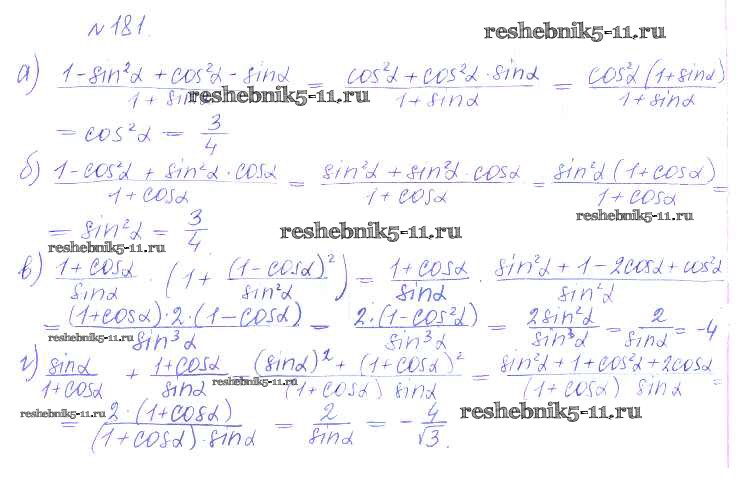 №181.
reshebnik5-11.ru
а) (1-sin²α + cos²α - sinα)/(1 + sinα) = (cos²α + cos²α · sinα)/(1 + sinα) = (cos²α (1+sinα))/(1 + sinα)
reshebnik5-11.ru
= cos²α = 3/4
б) (1-cos²α + sin²α · cosα)/(1 + cosα) = (sin²α + sin²α · cosα)/(1 + cosα) = (sin²α (1+cosα))/(1 + cosα) =
reshebnik5-11.ru
= sin²α = 3/4.
reshebnik5-11.ru
reshebnik5-11.ru
в) (1+cosα)/sinα · (1 + (1-cosα)²/sin²α) = (1+cosα)/sinα · (sin²α + 1 - 2cosα + cos²α)/sin²α
= ((1+cosα)·2·(1-cosα))/sin³α = (2·(1-cos²α))/sin³α = 2sin²α/sin³α = 2/sinα = -4
reshebnik5-11.ru
г) sinα/(1+cosα) + (1+cosα)/sinα = ((sinα)² + (1+cosα)²)/((1+cosα) sinα) = (sin²α + 1 + cos²α + 2cosα)/((1+cosα) sinα) =
reshebnik5-11.ru
reshebnik5-11.ru
= (2·(1+cosα))/((1+cosα)·sinα) = 2/sinα = -4/√3.
reshebnik5-11.ru